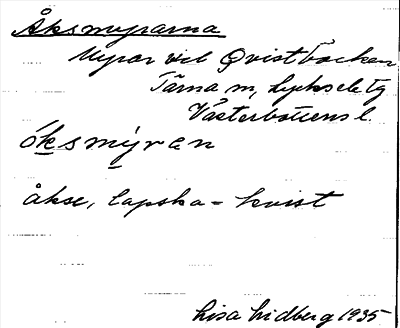 Åksmyrarna
Myrar vid Qvistbacken
Tärna sn, Lycksele tg
Västerbottens l.
óksmýran
åkse, lapska = kvist
Lisa Lidberg 1935